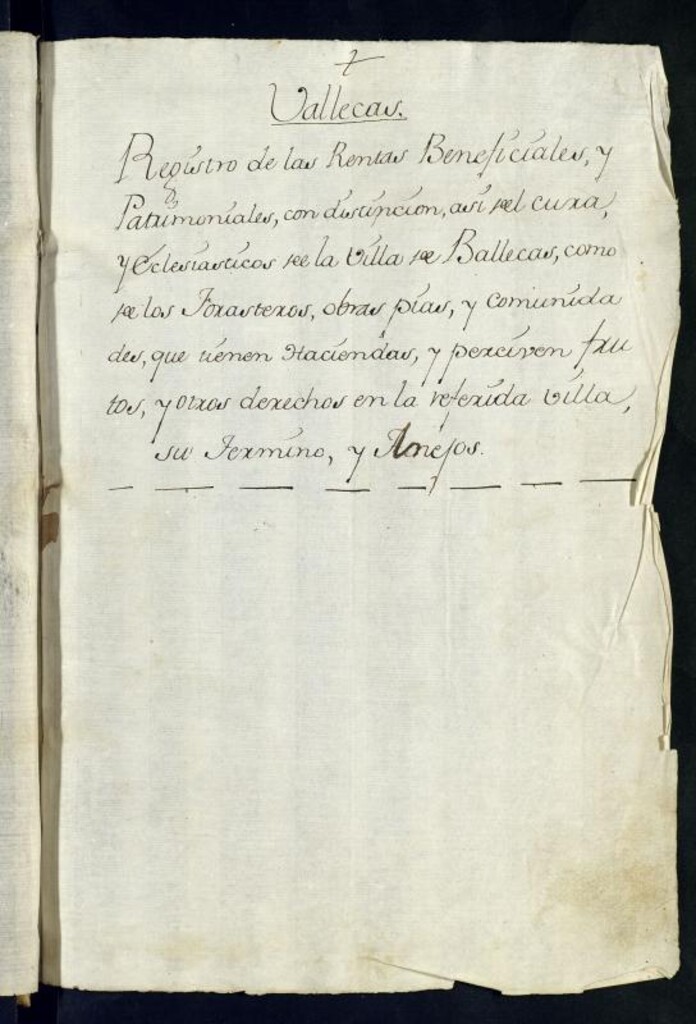 +
Vallecas.
Registro de las Rentas Beneficiales, y
Patrimoniales, con distincion, asi del cura,
y Eclesiasticos de la Villa de Ballecas, como
de los Forasteros, obras pias, y comunida
des, que tienen Haciendas, y perciven fru
tos, y otros derechos en la referida villa,
su Termino, y Anejos.